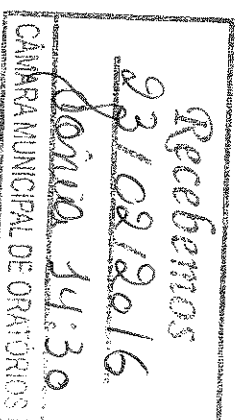 Recebemos
23/02/2016
Sônia 14:30
CÂMARA MUNICIPAL DE ORATÓRIOS